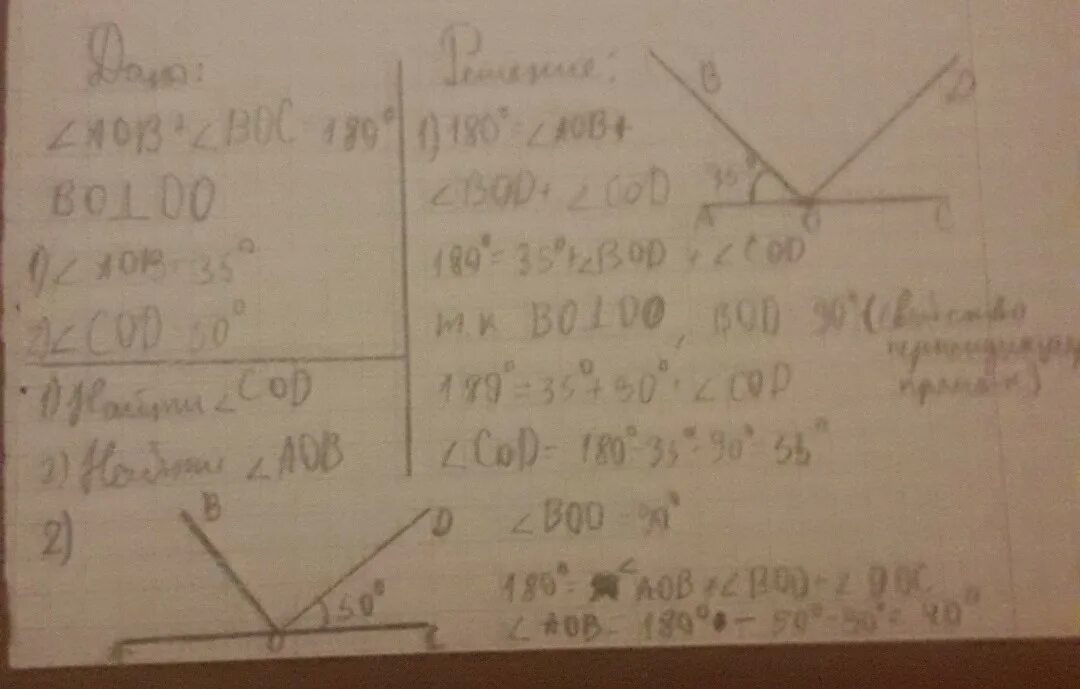 Дано:
∠AOB + ∠BOC = 180°
BO⊥DO
1) ∠AOB = 35°
2) ∠COD 50°
1) Найти ∠COD
2) Найти ∠AOB
Решение:
1) 180° = ∠AOB +
∠BOD + ∠COD
180° = 35° + ∠BOD + ∠COD
т.к BO⊥DO, BOD 90° (свойство
перпендикуляр
прямых)
180° = 35° + 90° + ∠COD
∠COD = 180° - 35° - 90° = 55°
B
D
35°
A
O
C
2)
B
D
50°
O
C
∠BOD = 90°
180° = ∠AOB + ∠BOD + ∠DOC
∠AOB = 180° - 50° - 90° = 40°